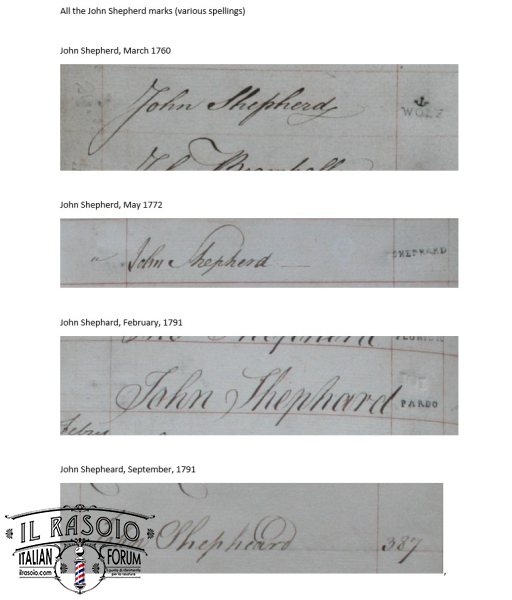 All the John Shepherd marks (various spellings)
John Shepherd, March 1760
John Shepherd
WOLF
John Shepherd, May 1772
John Shepherd
SHEPHERD
John Shephard, February, 1791
John Shephard
PARDO
John Shepheard, September, 1791
Shepheard
387
IL RASOIO
ITALIAN FORUM
ilrasoio.com